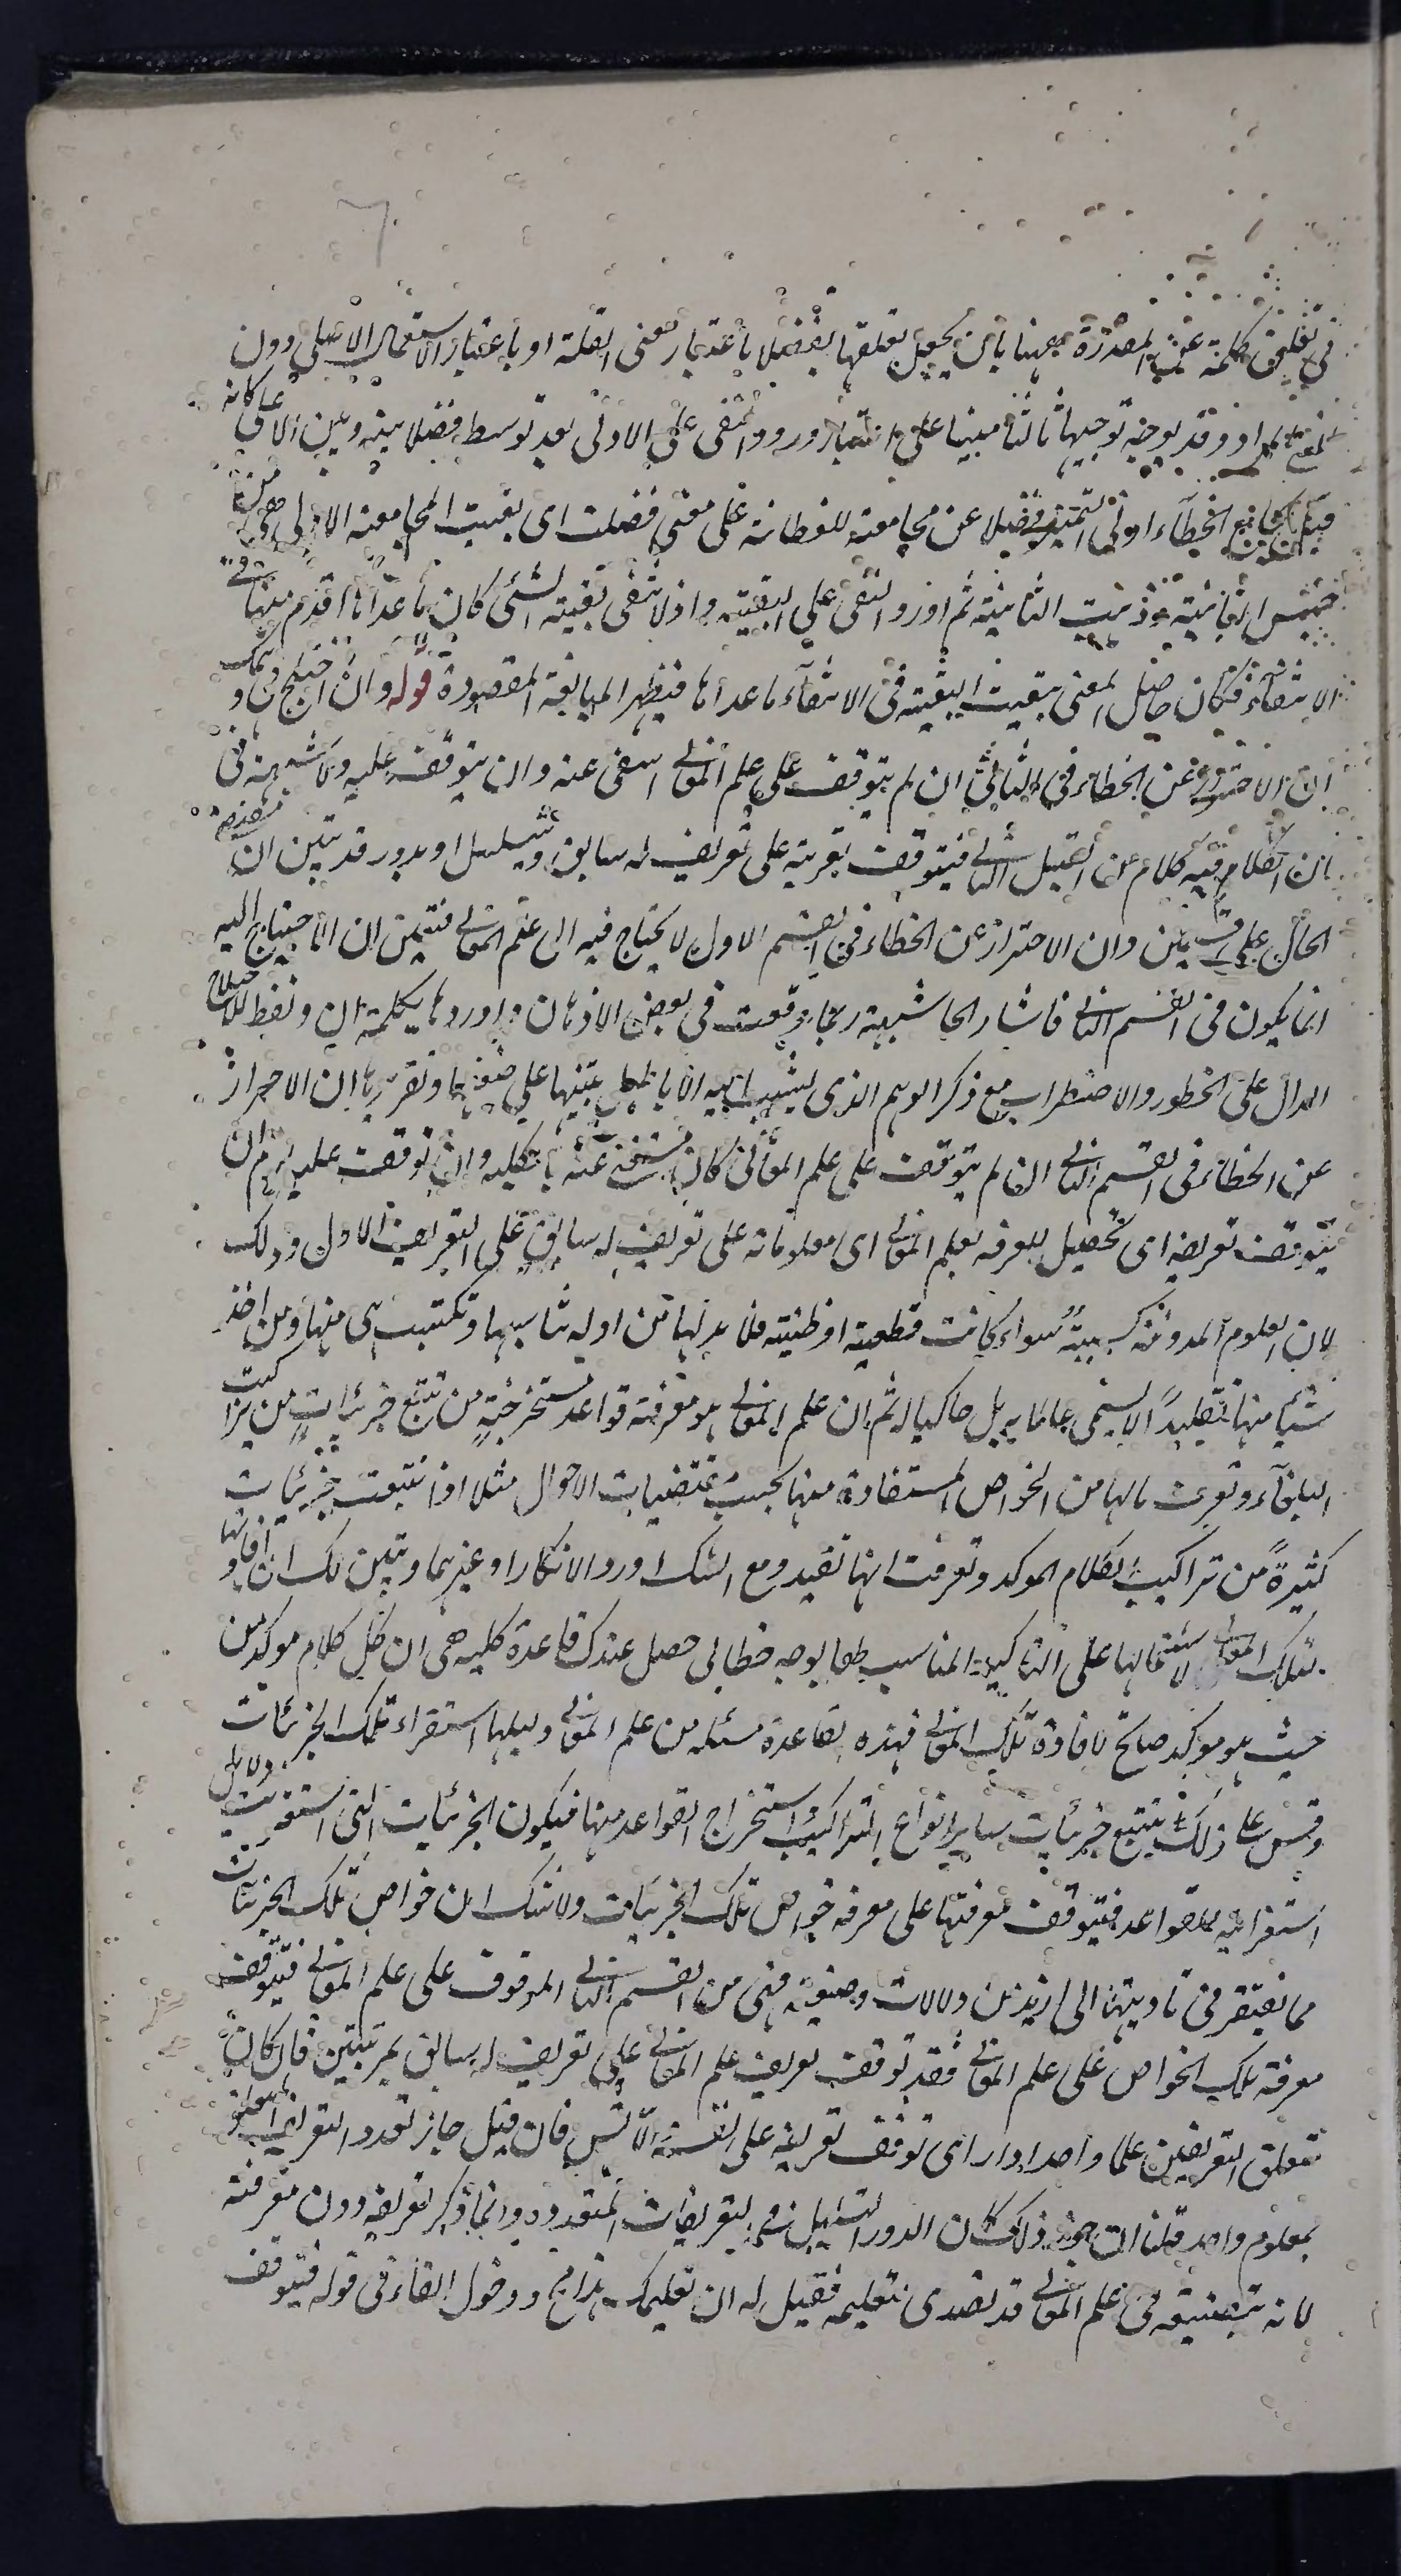 في تعليق كلمة عن المقدرة ههنا بان يجعل تعلقها بفضلا باعتبار معنى القلة او باعتبار الاستعمال الاصلي دون
المعنى المراد وقد يوجه توجيها ثالثا مبنيا على اعتبار ورود النفي على الادنى بعد توسط فضلا بينه وبين الاعلى كانه
قيل يجامع الخطاء ادنى التميز فضلا عن مجامعته للفطانة على معنى فضلت اى بقيت المجامعة الاولى من
جنس الثانية وذهبت الثانية ثم اورد النفي على البقية واذا انتفى بقية الشئ كان ما عداها اقدم منها في
الانتفاء فكان حاصل المعنى بقيت البقية في الانتفاء ما عداها فيظهر المبالغة المقصودة قوله وان اختلج في وهمك
ان الاحتراز عن الخطاء في الثاني ان لم يتوقف على علم المعاني استغنى عنه وان يتوقف عليه ولا شبهة في
ان الكلام فيه كلام من القبيل الثاني فيتوقف تعريفه على تعريف له سابق ويتسلسل او يدور قد تبين ان
الحال على قسمين وان الاحتراز عن الخطاء في القسم الاول لا يحتاج فيه الى علم المعاني فتعين ان الاحتياج اليه
انما يكون في القسم الثاني فاشار الى شبهة ربما وقعت في بعض الاذهان واوردها بكلمة ان ولفظ الاختلاج
الدال على الخطور والاضطراب مع ذكر الوهم الذى لينسب اليه الاباطيل تنبيها على ضعفها وتقريرها ان الاحتراز
عن الخطاء في القسم الثاني ان لم يتوقف على علم المعاني كان مستغنى عنه بالكلية وان توقف عليه لزم ان
يتوقف تعريفه اى تحصيل المعرفة بعلم المعاني اى معلوماته على تعريف له سابق على التعريف الاول وذلك
لان العلوم المدونة كسبية سواء كانت قطعية او ظنية فلا بد لها من ادلة تناسبها وتكتسب هى منها ومن اخذ
شيئا منها تقليدا لا يسمى عالما به بل حاكيا له ثم ان علم المعاني هو معرفة قواعد مستخرجة من تتبع جزئيات من تراكيب
البلغاء وتعرف مالها من الخواص المستفادة منها بحسب مقتضيات الاحوال مثلا اذا تتبعت جزئيات
كثيرة من تراكيب الكلام الموكد وتعرفت انها تفيد دفع الشك او رد الانكار او غيرهما وتبين لك ان افادتها
لتلك المعاني لاشتمالها على التاكيد المناسب لها بوجه خطابى حصل عندك قاعدة كلية هى ان كل كلام موكد من
حيث هو موكد صالح لافادة تلك المعاني فهذه القاعدة مسئلة من علم المعاني ودليلها استقراء تلك الجزئيات
وقس على ذلك تتبع جزئيات ساير انواع التراكيب واستخراج القواعد منها فيكون الجزئيات التى استقريت دلايل
استقرائية للقواعد فيتوقف معرفتها على معرفة خواص تلك الجزئيات ولا شك ان خواص تلك الجزئيات
مما يفتقر في تاديتها الى ازيد من دلالات وضعية فهى من القسم الثاني الموقوف على علم المعاني فيتوقف
معرفة تلك الخواص على علم المعاني فقد توقف تعريف علم المعاني على تعريف له سابق بمرتبتين فان كان
متعلق التعريفين علما واحدا دار اى توقف تعريفه على نفسه والا تس فان قيل جاز تعدد التعريف المتعلق
بمعلوم واحد قلنا ان جوز ذلك كان الدور التسلسل في التعريفات المتعددة وانما ذكر تعريفه دون معرفته
لانه بتصنيفه في علم المعاني قد تصدى بتعليمه فقيل له ان تعليمك هذا مح ودخول الفاء في قوله فيتوقف